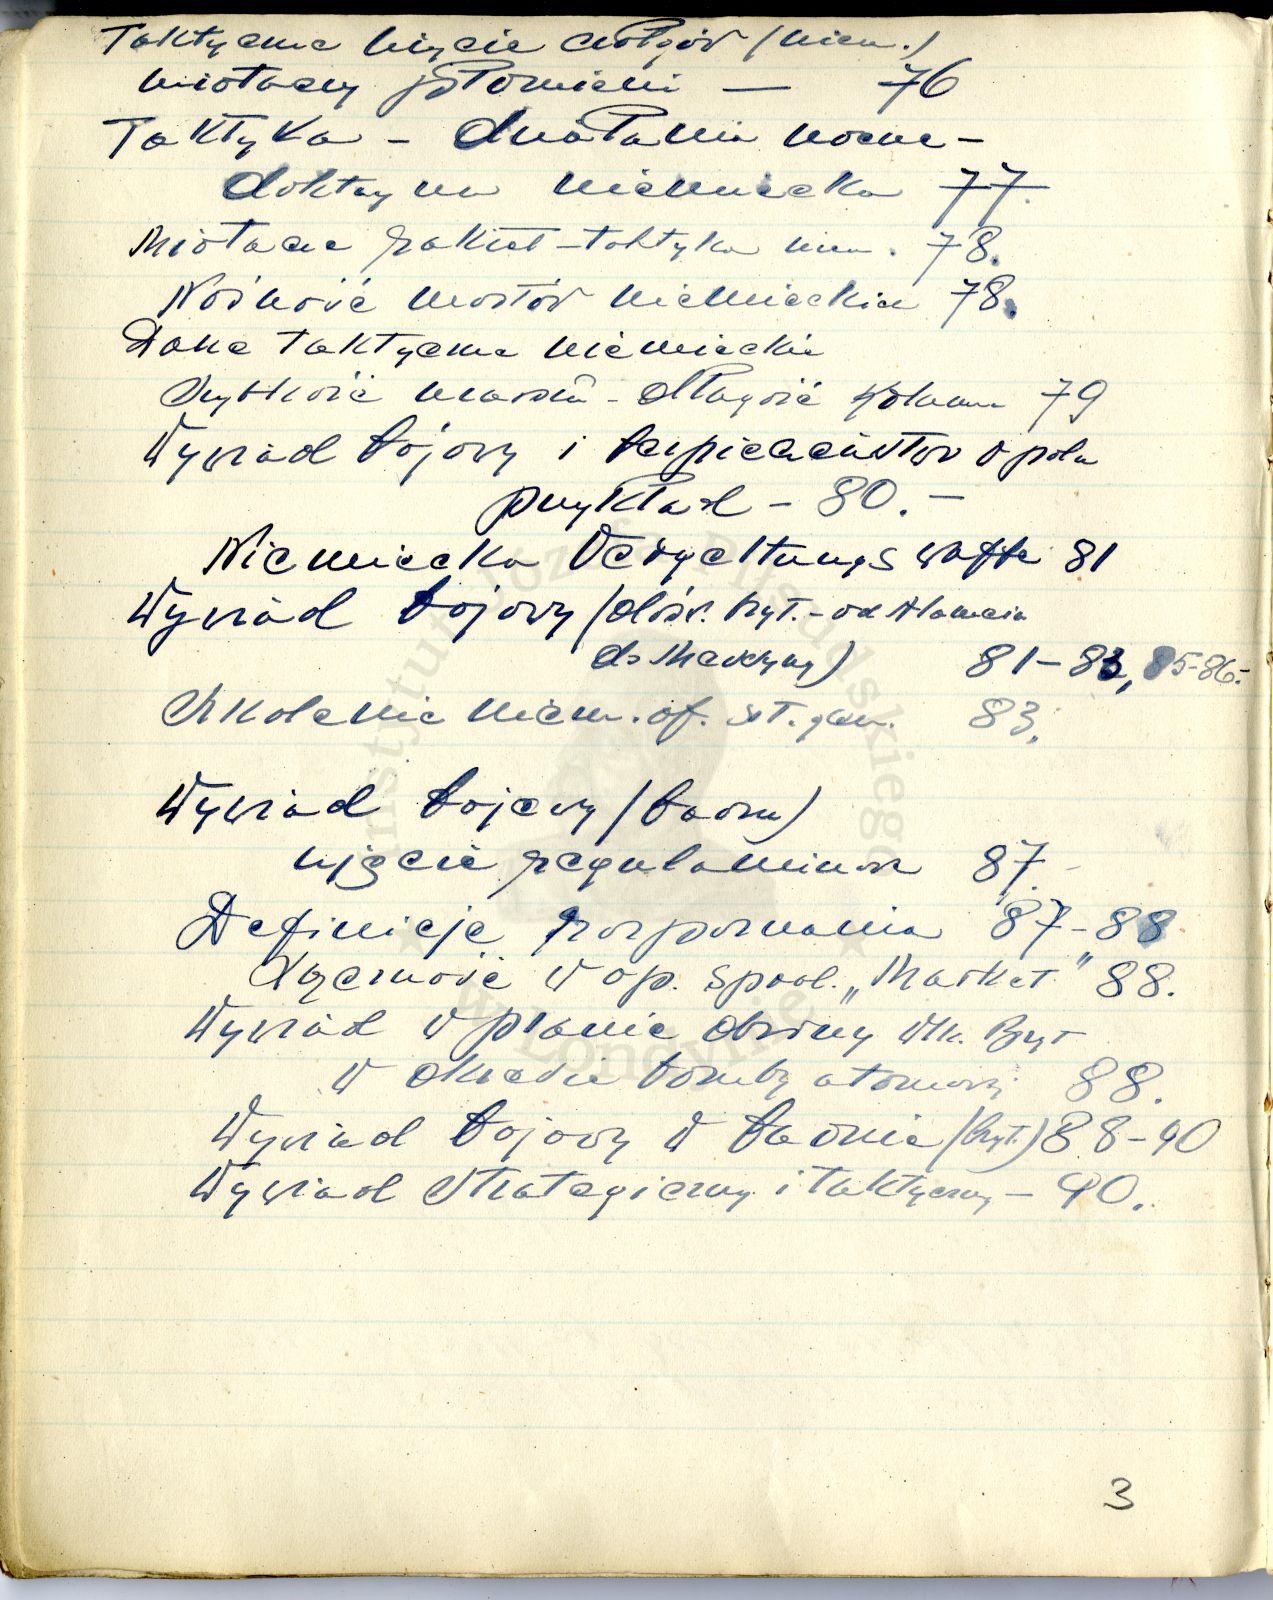 Taktyczne użycie czołgów (niem.)
miotaczy płomieni — 76
Taktyka - działania nocne -
doktryna niemiecka 77.
Miotacze rakiet - taktyka niem. 78.
Nośność mostów niemieckich 78.
Dane taktyczne niemieckie
Szybkość marszu - długość kolumn 79
Wywiad bojowy i bezpieczeństwo w polu
przykład - 80. -
Niemiecka Vergeltungswaffe 81
Wywiad bojowy (dośw. bryt. - od Alamein
do Messyny) 81-83, 85-86.-
Szkolenie niem. of. szt. gen. 83.
Wywiad bojowy (badm)
ujęcie regulaminowe 87.
Definicje rozpoznania 87-88
Łączność w op. spad. „Market" 88.
Wywiad w planie obrony Wlk. Bryt
w okresie bomby atomowej 88.
Wywiad bojowy w (bryt.) 88-90
Wywiad strategiczny i taktyczny - 90.
3
Instytut Józefa Piłsudskiego
w Londynie